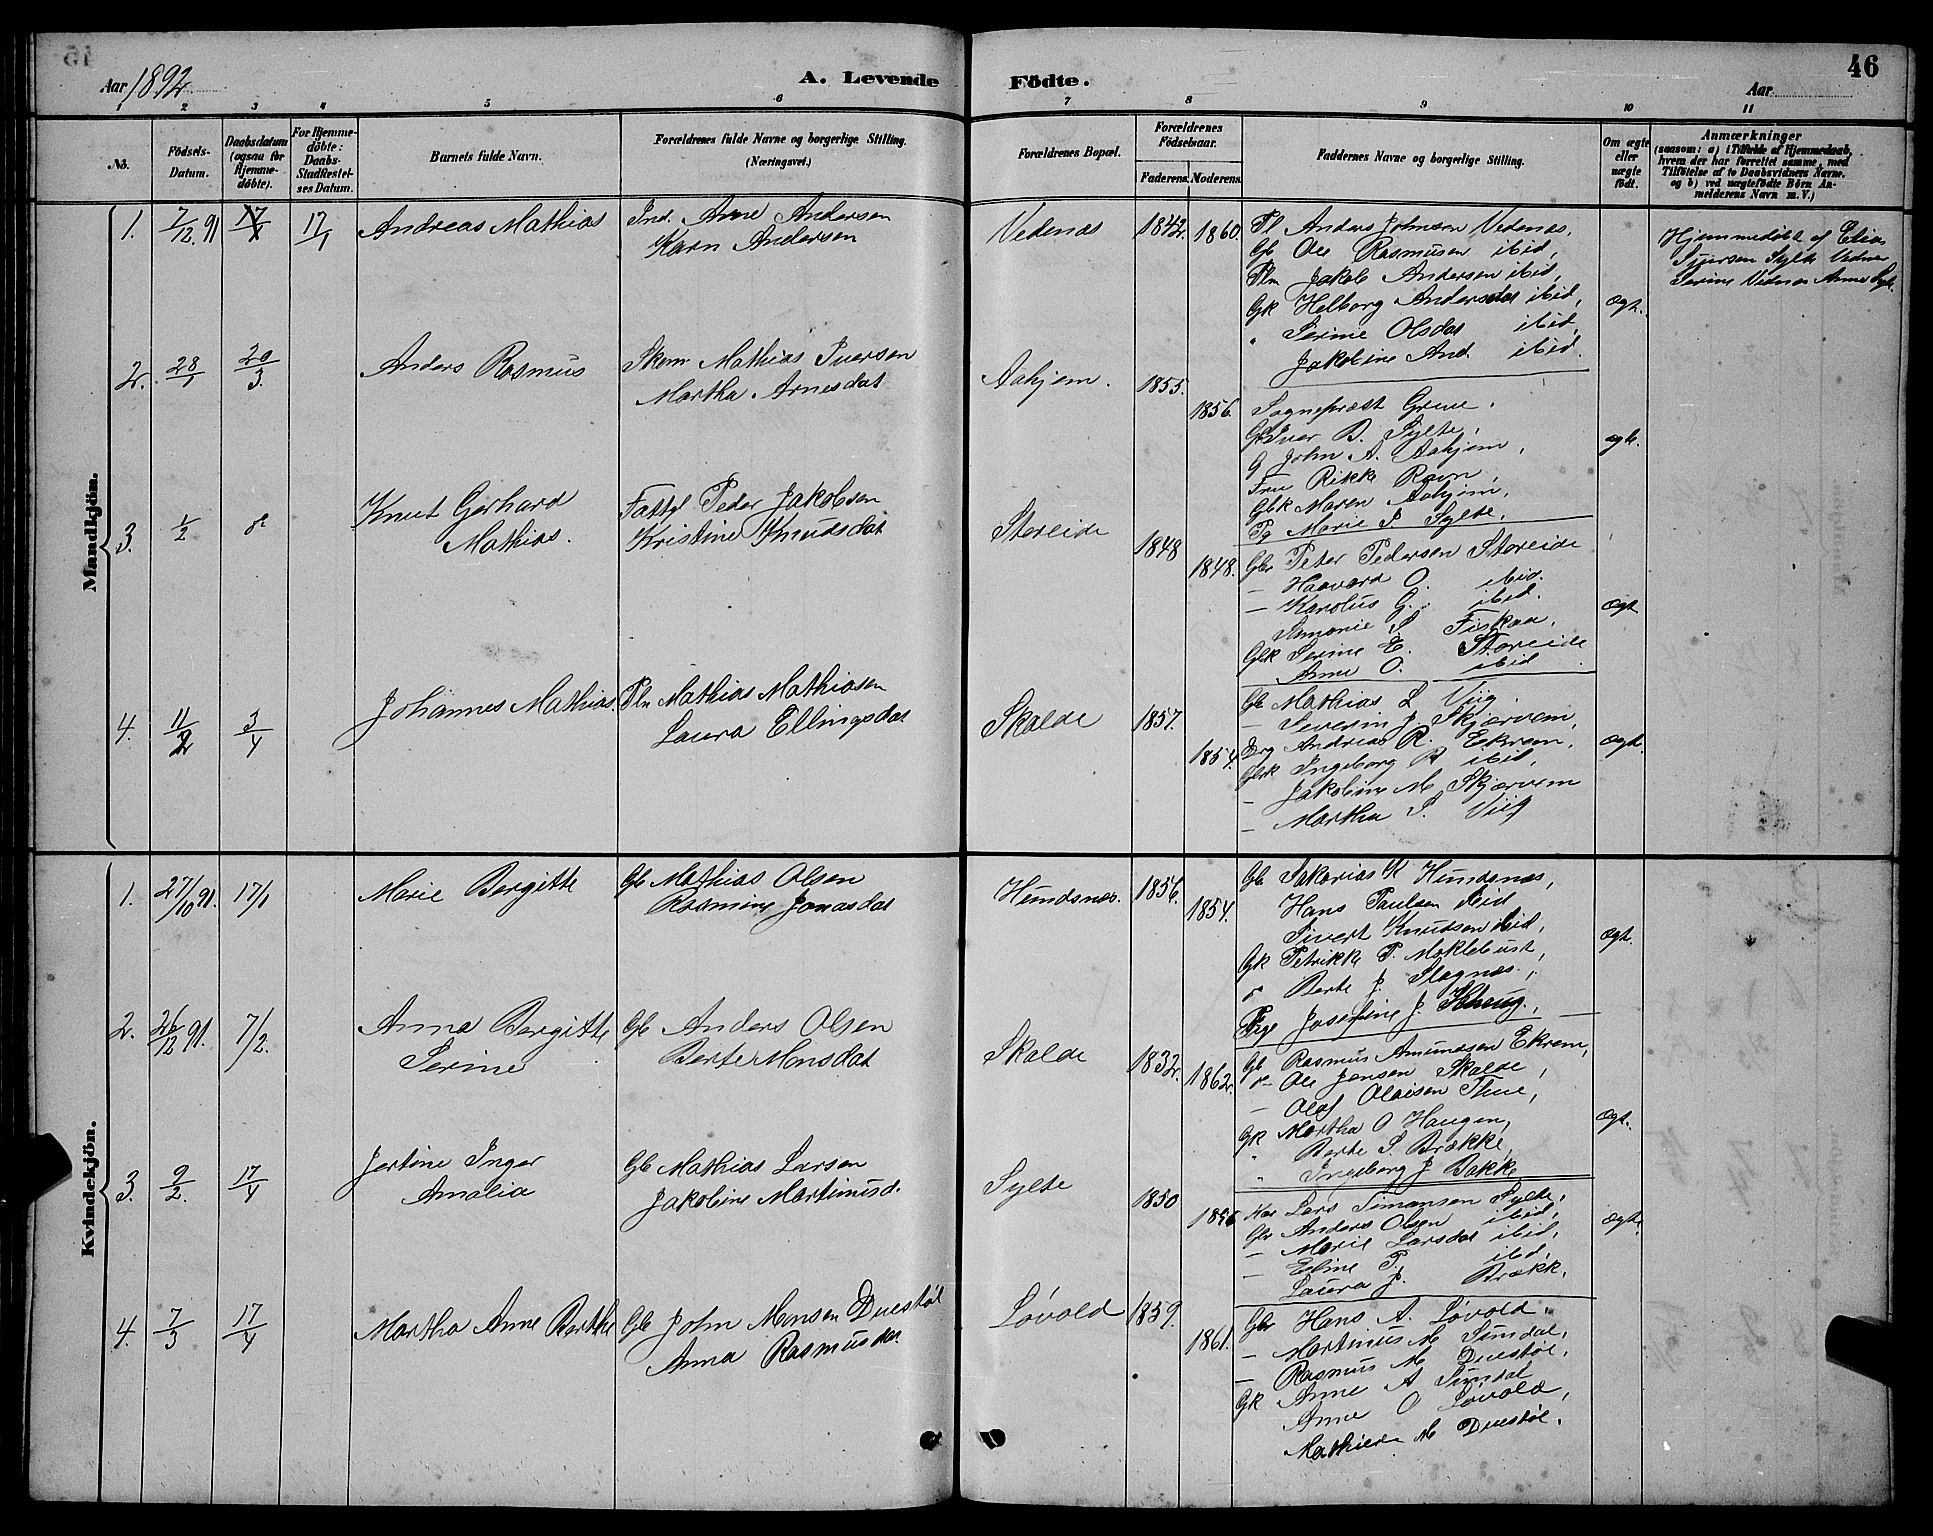 Aar 1892
A. Levende Födte.
46
Aar
1 2 3 4 5 6 7 8 9 10 11
No.
Födsels-Datum.
Daabsdatum (ogsaa for Hjemme-döbte).
For Hjemme-döbte: Daabs-Stadfæstel-ses Datum.
Barnets fulde Navn.
Forældrenes fulde Navne og borgerlige Stilling. (Næringsvei.)
Forældrenes Bopæl.
Forældrenes Födselsaar.
Faderens. Moderens.
Faddernes Navne og borgerlige Stilling.
Om ægte eller uægte födt.
Anmærkninger
(saasom: a) i Tilfælde af Hjemmedaab, hvem der har forrettet samme, med Tilföielse af to Daabsvidners Navne. og b) ved uægtefödte Börn Anmelderens Navn m. V.)
Mandkjön.
1. 7/12 91 17/1 17/1 Andreas Mathias
Ind. Arne Andersen
Karn Andersen
Vedenæs 1842. 1860.
Pl Anders Johnsen Vedenæs,
Gb Ole Rasmusen ibid,
Plm Jakob Andersen ibid,
Gk Helborg Andersdat ibid,
" Serine Olsdat ibid,
Jakobine And. ibid.
Ægt.
Hjemmedøbt af Elias
Syltе Vednes
Serine Vednes Anne Sylt.
2. 28/1 20/3 Anders Rasmus
Skom Mathias Iversen
Martha Arnesdat
Aahjem. 1855. 1856.
Sognepræst Greve.
Gb Iver B. Sylte,
G John A. Aahjem,
Fru Rikke Ravn,
Gbk Maren Aahjem,
Pg Marie P Sylte.
ægte.
3. 1/2 d° Knut Gerhard
Mathias.
Fattgl Peder Jakobsen
Kristine Knudsdat
Storeide 1848 1848.
Gbr Peter Pedersen Storeide
— Haavard O. ibid.
— Karolus G. ibid.
Simonie S Fiskaa,
Gbk Serine E. Storeide
Anne O. ibid.
Ægt
4. 11/2 3/4 Johannes Mathias.
Pln Mathias Mathiasen
Laura Ellingsdat
Skalde 1857. 1854.
Gb Mathias L Viig.
— Severin J. Skjærvem,
Ing Andreas R. Ekrem,
Gbk Ingeborg R ibid,
— Jakobine M. Skjærvem
— Martha S. Viig
Ægt.
Kvindekjön.
1. 27/10 91. 17/1 Marie Bergitte
Gb Mathias Olsen
Rasmine Jonasdat
Hundsnæs. 1856. 1854.
Gb Sakarias K Hundsnæs,
Hans Paulsen ibid
Sivert Knudsen ibid,
Gk Petrikke P. Moklebust,
d° Berte J. Slagnæs.,
Pige Josefine J.
Ægt.
2. 26/12 91. 7/2. Anna Bergitte
Serine
Gb Anders Olsen
Berte Monsdat
Skalde 1832. 1862.
Gb Rasmus Amundsen Ekrem,
d°— Ole Jensen Skalde,
— Olaf Olaisen Thue,
Gk Martha O Haugen,
" Berte S. Brække,
" Ingeborg J Bakke
Ægt.
3. 9/2. 17/4 Jertine Inger
Amalia
Gb Mathias Larsen
Jakobine Martinusd.
Sylte 1850 1856
Kar Lars Simonsen Sylte,
Gbr Anders Olsen ibid,
— Marie Larsdat ibid,
— Eline P. ibid,
Laura J. Brækk.
ægte
4. 7/3 17/4 Martha Anne Berthe
Gb John Monsen Duestøl
Anna Rasmusdat
Løvold 1859. 1861.
Gbr Hans A. Løvold.
— Martinus M. Sundal,
— Rasmus M. Duestøl,
Gk Anne A Sundal
Anne O Løvold,
Mathilde M Duestøl.